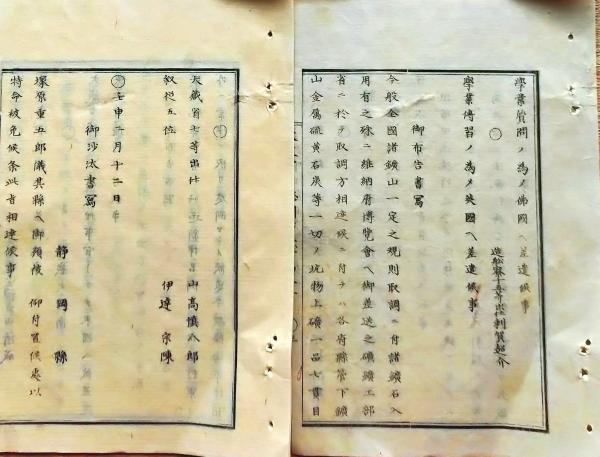 學業質問ノ為メ佛國ヘ差遣候事
造船
學業傳習ノ為メ英國ヘ差遣候事
御布告書寫
今般全國諸鑛山一定之規則取調ニ付諸鑛石入
用有之殊ニ維納府博覽會ヘ御差送之礦鑛工部
省ニ於テ取調方相達候ニ付テハ各府縣管下鑛
山金属硫黄石炭等一切ノ坑物上礦一品七貫目
大藏省七等出仕
山高愼八郎
叙從五位
伊達宗陳
壬申二月十二日
御沙汰書寫
静岡縣
塚原重五郎儀其縣ヘ御預被仰付置候處以
特命被免候条此旨相達候事